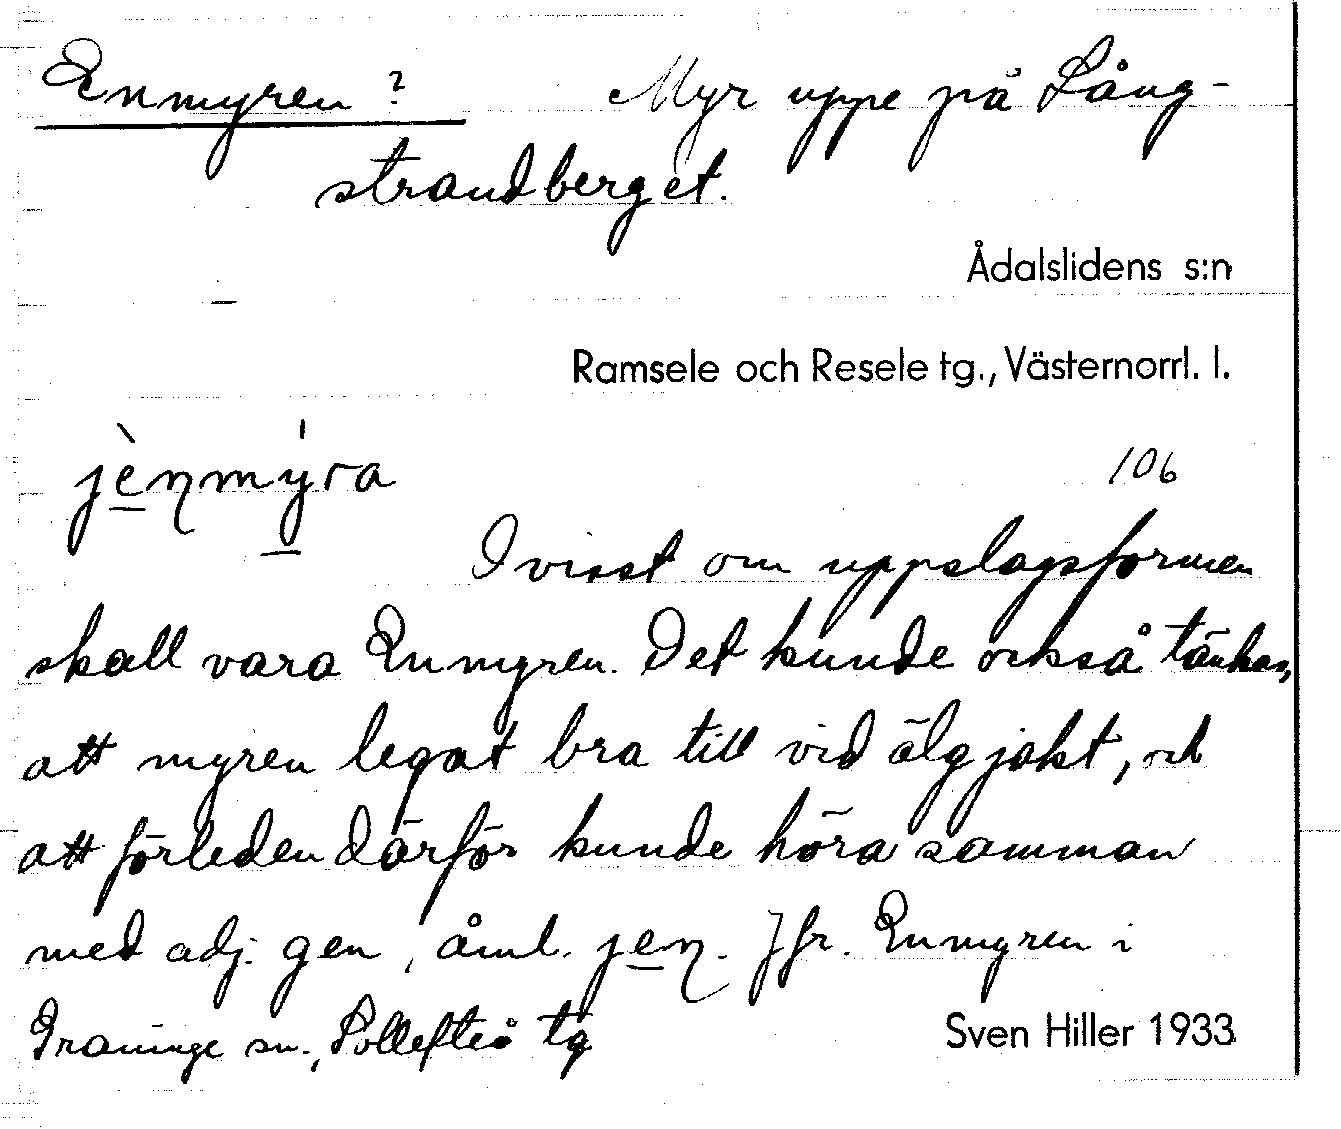 Enmyren? Myr uppe på Lång-
strandberget.
Ådalslidens s:n
Ramsele och Resele tg., Västernorrl. l.
jèn̡mýra
106
Ovisst om uppslagsformen
skall vara Enmyren. Det kunde också tänkas,
att myren legat bra till vid älgjakt, och
att förleden därför kunde höra samman
med adj. gen, åml. jen̡. Jfr. Enmyren i
Graninge sn., Sollefteå tg
Sven Hiller 1933